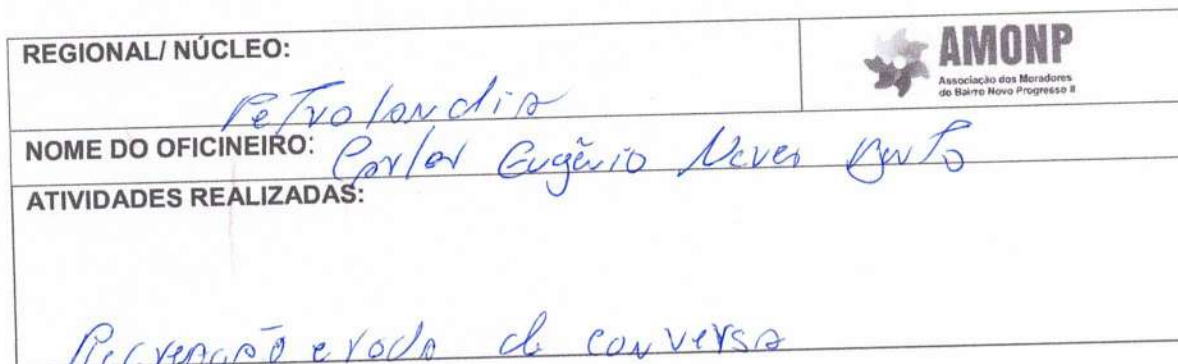 REGIONAL/ NÚCLEO:
AMONP
Associação dos Moradores
do Bairro Novo Progresso II
Petrolandia
NOME DO OFICINEIRO: Carlos Eugênio Neves
ATIVIDADES REALIZADAS:
Recreação e roda de conversa